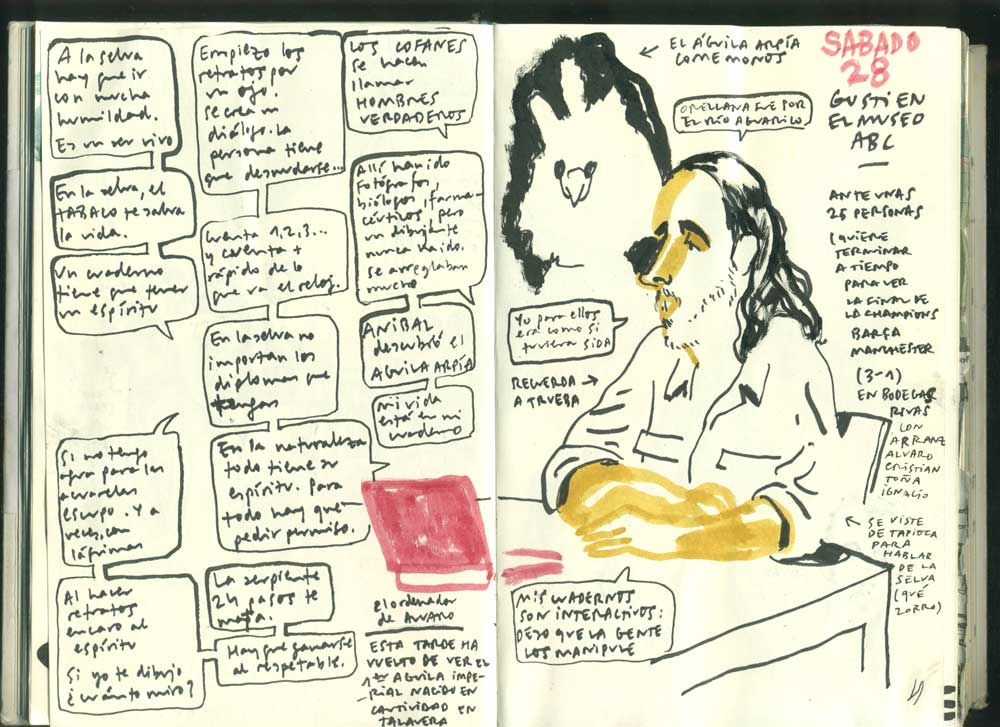 A la selva
hay que ir
con mucha
humildad.
Es un ser vivo
En la selva, el
TABACO te salva
la vida.
Un cuaderno
tiene que tener
un espíritu
Si no tengo
agua para las
acuarelas
escupo. Y a
veces, con
lágrimas
Al hacer
retratos
encaro al
espíritu
Si yo te dibujo
¿cuánto miro?
Empiezo los
retratos por
un ojo.
Se crea un
diálogo. La
persona tiene
que desnudarse...
Cuenta 1, 2, 3...
y cuenta +
rápido de lo
que va el reloj.
En la selva no
importan los
diplomas que
tengas
En la naturaleza
todo tiene su
espíritu. Para
todo hay que
pedir permiso.
La serpiente
24 pasos te
mata.
Hay que ganarse
al respetable.
LOS COFANES
se hacen
llamar
HOMBRES
VERDADEROS
Allí han ido
fotógrafos,
biólogos, farma-
céuticos, pero
un dibujante
nunca ha ido.
Se arreglaban
mucho
ANÍBAL
descubrió el
AGUILA ARPÍA
mi vida
está en mi
cuaderno
el ordenador
de ALVARO
ESTA TARDE HA
VUELTO DE VER EL
1er AGUILA IMPE-
RIAL NACIDO EN
CAUTIVIDAD EN
TALAVERA
← EL ÁGUILA ARPÍA
COME MONOS
ORELLANA FUE POR
EL RÍO AGUARICO.
Yo para ellos
era como si
tuviera SIDA
RECUERDA →
A TRUEBA
MIS CUADERNOS
SON INTERACTIVOS:
DEJO QUE LA GENTE
LOS MANIPULE
SABADO
28
GUSTI EN
EL MUSEO
ABC
ANTE UNAS
25 PERSONAS
(QUIERE
TERMINAR
A TIEMPO
PARA VER
LA FINAL DE
LA CHAMPIONS
BARÇA
MANCHESTER
(3-1)
EN BODEGAS
RIVAS
CON
ARRANZ
ALVARO
CRISTIAN
TOÑA
IGNACIO
SE VISTE
DE TAPIOCA
PARA
HABLAR
DE LA
SELVA
(QUÉ
ZORRO)